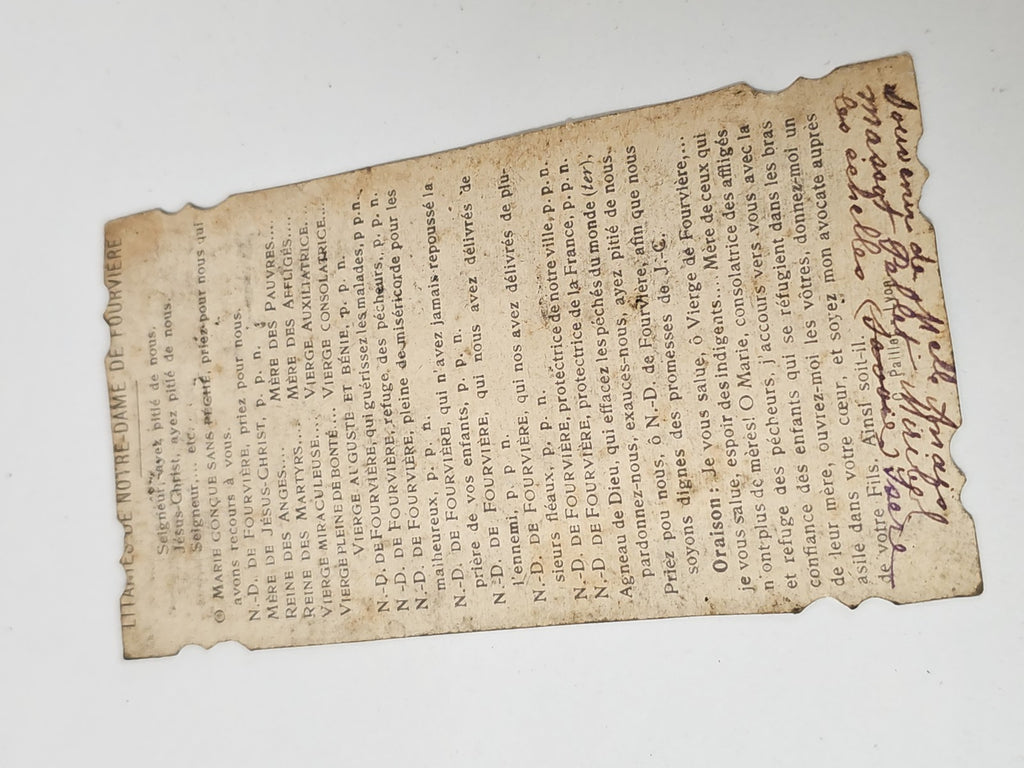 LITANIES DE NOTRE-DAME DE FOURVIÈRE
Seigneur, ayez pitié de nous.
Jésus-Christ, ayez pitié de nous.
Seigneur... etc.
O MARIE CONÇUE SANS PÉCHÉ, priez pour nous qui
avons recours à vous.
N.-D. DE FOURVIÈRE, priez pour nous.
MÈRE DE JÉSUS-CHRIST, p. p. n.
REINE DES ANGES.... MÈRE DES PAUVRES....
REINE DES MARTYRS.... MÈRE DES AFFLIGÉS....
VIERGE MIRACULEUSE.... VIERGE AUXILIATRICE...
VIERGE PLEINE DE BONTÉ... VIERGE CONSOLATRICE...
VIERGE AUGUSTE ET BÉNIE, p. p. n.
N.-D. DE FOURVIÈRE, qui guérissez les malades, p. p. n.
N.-D. DE FOURVIÈRE, refuge des pécheurs, p. p. n.
N.-D. DE FOURVIÈRE, pleine de miséricorde pour les
malheureux, p. p. n.
N.-D. DE FOURVIÈRE, qui n'avez jamais repoussé la
prière de vos enfants, p. p. n.
N.-D. DE FOURVIÈRE, qui nous avez délivrés de
l'ennemi, p. p. n.
N.-D. DE FOURVIÈRE, qui nos avez délivrés de plu-
sieurs fléaux, p. p. n.
N.-D. DE FOURVIÈRE, protectrice de notre ville, p. p. n.
N.-D. DE FOURVIÈRE, protectrice de la France, p. p. n.
Agneau de Dieu, qui effacez les péchés du monde (ter),
pardonnez-nous, exaucez-nous, ayez pitié de nous.
Priez pou nous, ô N.-D. de Fourvière, afin que nous
soyons dignes des promesses de J.-C.
Oraison : Je vous salue, ô Vierge de Fourvière,...
je vous salue, espoir des indigents.... Mère de ceux qui
n'ont plus de mères! O Marie, consolatrice des affligés
et refuge des pécheurs, j'accours vers vous avec la
confiance des enfants qui se réfugient dans les bras
de leur mère, ouvrez-moi les vôtres, donnez-moi un
asile dans votre cœur, et soyez mon avocate auprès
de votre Fils. Ainsi soit-il.
Souvenir de Mell
les echelles (Savoie